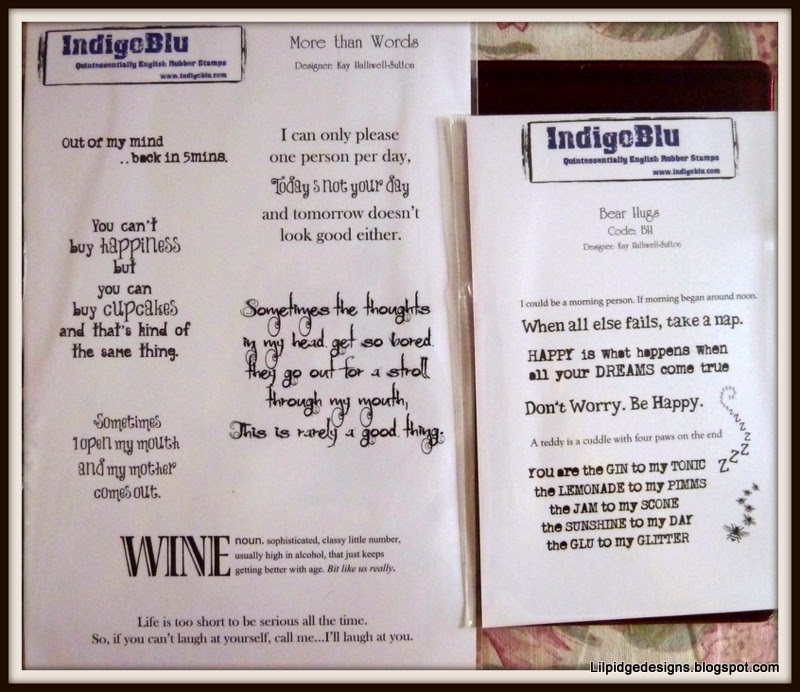 IndigoBlu
Quintessentially English Rubber Stamps
www.indigoblu.com
More than Words
Designer: Kay Halliwell-Sutton
Out of my mind
..back in 5mins.
I can only please
one person per day,
Today s not your day
and tomorrow doesn't
look good either.
You can't
buy happiness
but
you can
buy cupcakes
and that's kind of
the same thing.
Sometimes the thoughts
in my head get so bored
they go out for a stroll
through my mouth,
This is rarely a good thing.
Sometimes
I open my mouth
and my mother
comes out.
WINE noun. sophisticated, classy little number,
usually high in alcohol, that just keeps
getting better with age. Bit like us really.
Life is too short to be serious all the time.
So, if you can't laugh at yourself, call me...I'll laugh at you.
IndigoBlu
Quintessentially English Rubber Stamps
www.indigoblu.com
Bear Hugs
Code: BH
Designer: Kay Halliwell-Sutton
I could be a morning person. If morning began around noon.
When all else fails, take a nap.
HAPPY is what happens when
all your DREAMS come true
Don't Worry. Be Happy.
A teddy is a cuddle with four paws on the end
ZZZzzz
You are the GIN to my TONIC
the LEMONADE to my PIMMS
the JAM to my SCONE
the SUNSHINE to my DAY
the GLU to my GLITTER
Lilpidgedesigns.blogspot.com